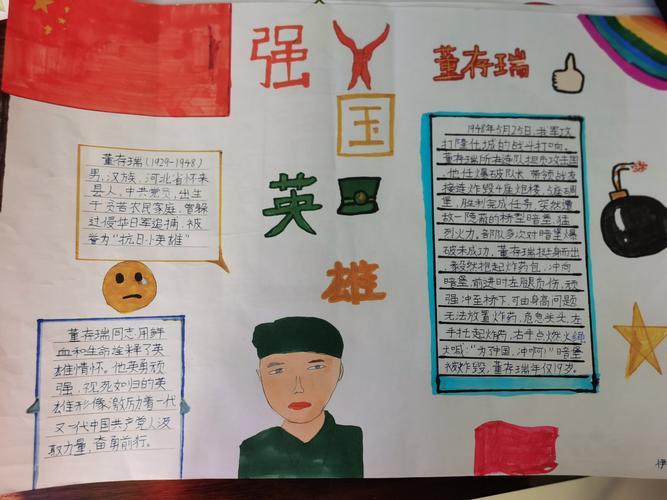 强
国
英
雄
董存瑞
董存瑞(1929-1948)
男,汉族,河北省怀来
县人,中共党员,出生
于贫苦农民家庭,曾躲
过侵华日军追捕,被
誉为“抗日小英雄”
董存瑞同志用鲜
血和生命诠释了英
雄情怀。他英勇顽
强,视死如归的英
雄形像,激励着一代
又一代中国共产党人汲
取力量,奋勇前行。
1948年5月25日,我军攻
打隆化城的战斗打响。
董存瑞所在连队担负攻击国
他任爆破队长,带领战友
接连炸毁4座炮楼,5座碉
堡,胜利完成任务,突然遭
敌一隐蔽的桥型暗堡猛
烈火力。部队多次对暗堡爆
破未成功,董存瑞挺身而出
毅然抱起炸药包,冲向
暗堡,前进时左腿负伤,顽
强冲至桥下,可由身高问题
无法放置炸药,危急关头,左
手托起炸药,右手点燃火
大喊:“为了中国,冲啊!”暗堡
被炸毁,董存瑞年仅19岁。
伊